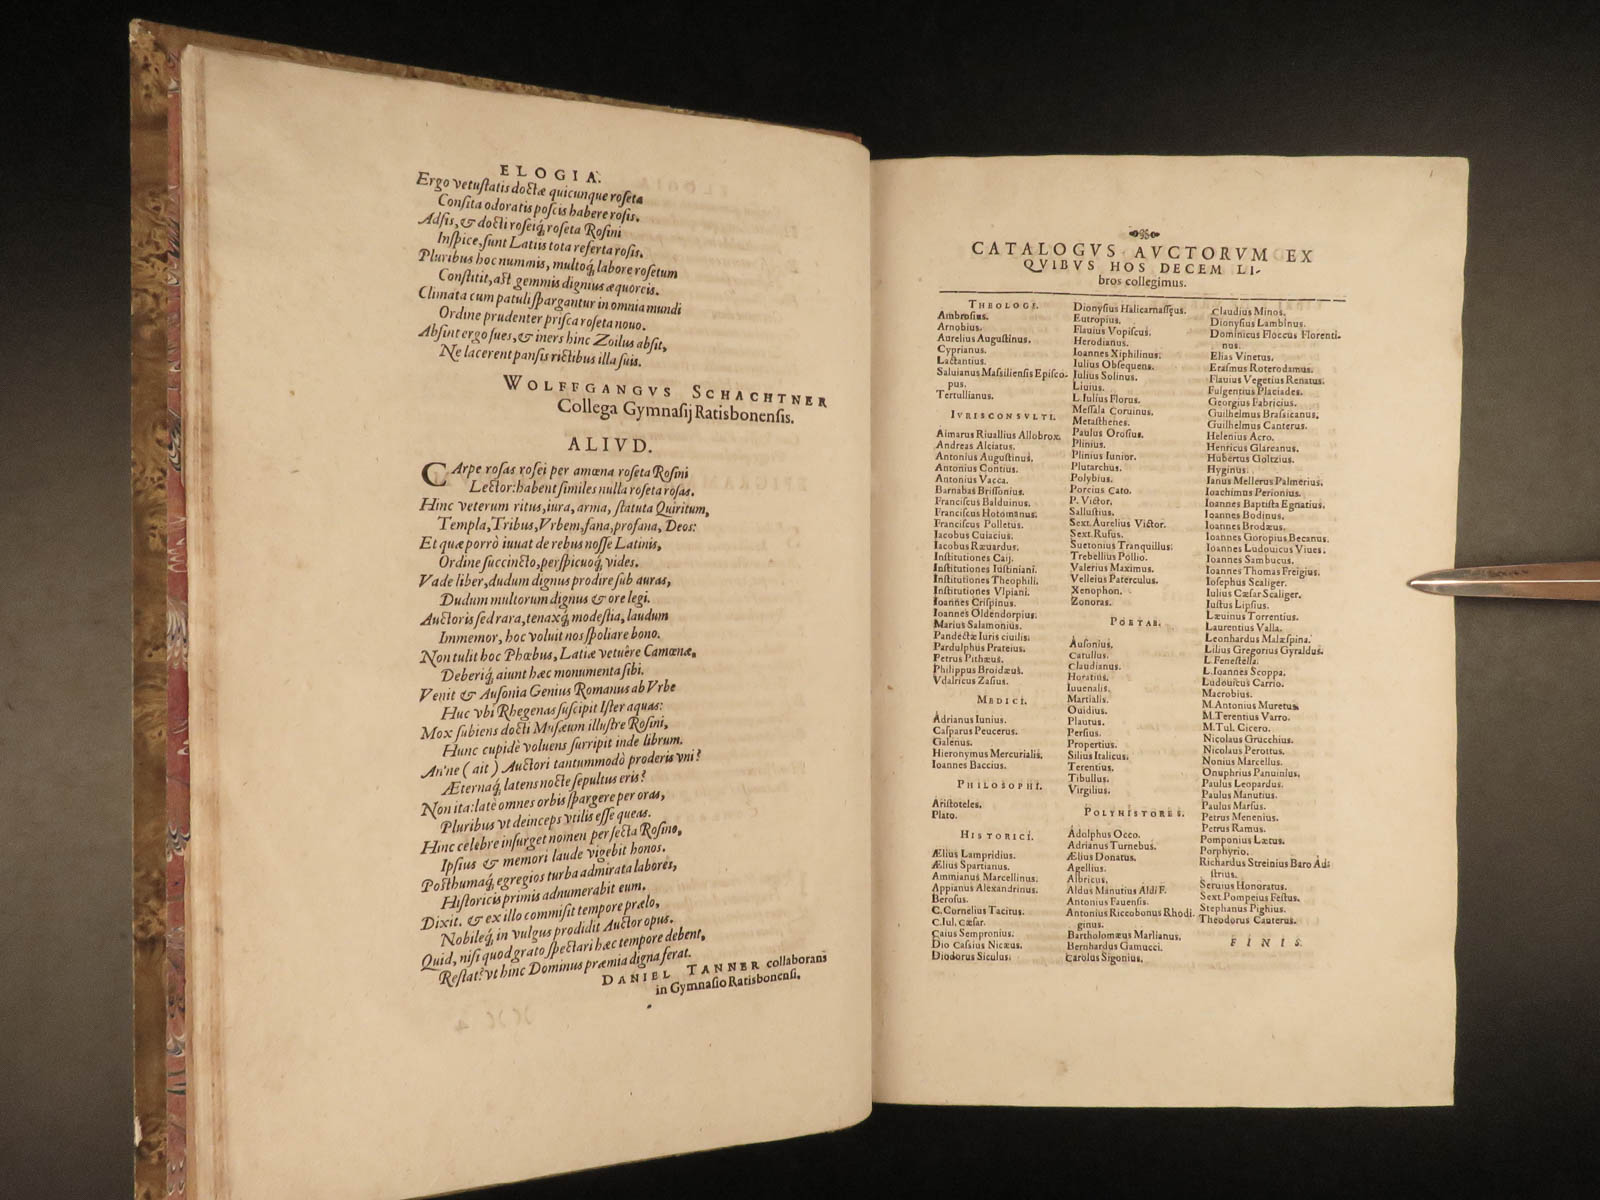 ELOGIA.
Ergo vetustatis doctæ quicunque roseta
Consita odoratis poscis habere rosis.
Adsis, & docti roseiq́; roseta Rosini
Inspice, sunt Latiis tota referta rosis.
Pluribus hoc nummis, multoq́; labore rosetum
Constitit, ast gemmis dignius æquoreis.
Climata cum patuli spargantur in omnia mundi
Ordine prudenter prisca roseta nouo.
Absint ergo sues, & iners hinc Zoilus absit,
Ne lacerent pansis rictibus illa suis.
WOLFFGANGVS SCHACHTNER
Collega Gymnasij Ratisbonensis.
ALIVD.
CArpe rosas rosei per amœna roseta Rosini
Lector: habent similes nulla roseta rosas.
Hinc veterum ritus, iura, arma, statuta Quiritum,
Templa, Tribus, Vrbem, fana, profana, Deos:
Et quæ porrò iuuat de rebus nosse Latinis,
Ordine succincto, perspicuoq́; vides.
Vade liber, dudum dignus prodire sub auras,
Dudum multorum dignus & ore legi.
Auctoris sed rara, tenaxq́; modestia, laudum
Immemor, hoc voluit nos spoliare bono.
Non tulit hoc Phœbus, Latiæ vetuêre Camœnæ,
Deberiq́; aiunt hæc monumenta sibi.
Venit & Ausonia Genius Romanus ab Vrbe
Huc vbi Rhegenas suscipit Ister aquas:
Mox subiens docti Musæum illustre Rosini,
Hunc cupidè voluens surripit inde librum.
An'ne (ait) Auctori tantummodò proderis vni?
Æternaq́; latens nocte sepultus eris?
Non ita: latè omnes orbis spargere per oras,
Pluribus vt deinceps vtilis esse queas.
Hinc celebre insurget nomen per secta Rosino,
Ipsius & memori laude vigebit honos.
Posthumaq́; egregios turba admirata labores,
Historicis primis adnumerabit eum.
Dixit. & ex illo commisit tempore prælo,
Nobileq́; in vulgus prodidit Auctor opus.
Quid, nisi quod grato spectari hæc tempore debent,
Restat? vt hinc Dominus præmia digna ferat.
DANIEL TANNER collaborans
in Gymnasio Ratisbonensi.
CATALOGVS AVCTORVM EX
QVIBVS HOS DECEM LI-
bros collegimus.
THEOLOGI.
Ambrosius.
Arnobius.
Aurelius Augustinus.
Cyprianus.
Lactantius.
Saluianus Massiliensis Episco-
pus.
Tertullianus.
IVRISCONSVLTI.
Aimarus Riuallius Allobrox.
Andreas Alciatus.
Antonius Augustinus.
Antonius Contius.
Antonius Vacca.
Barnabas Brissonius.
Franciscus Balduinus.
Franciscus Hotomanus.
Franciscus Polletus.
Iacobus Cuiacius.
Iacobus Ræuardus.
Institutiones Caij.
Institutiones Iustiniani.
Institutiones Theophili.
Institutiones Vlpiani.
Ioannes Crispinus.
Ioannes Oldendorpius.
Marius Salamonius.
Pandectæ Iuris ciuilis.
Pardulphus Prateius.
Petrus Pithæus.
Philippus Broidæus.
Vdalricus Zasius.
MEDICI.
Adrianus Iunius.
Casparus Peucerus.
Galenus.
Hieronymus Mercurialis.
Ioannes Baccius.
PHILOSOPHI.
Aristoteles.
Plato.
HISTORICI.
Ælius Lampridius.
Ælius Spartianus.
Ammianus Marcellinus.
Appianus Alexandrinus.
Berosus.
C. Cornelius Tacitus.
C. Iul. Cæsar.
Caius Sempronius.
Dio Cassius Nicæus.
Diodorus Siculus.
Dionysius Halicarnasseus.
Eutropius.
Flauius Vopiscus.
Herodianus.
Ioannes Xiphilinus.
Iulius Obsequens.
Iulius Solinus.
Liuius.
L. Iulius Florus.
Messala Coruinus.
Metasthenes.
Paulus Orosius.
Plinius.
Plinius Iunior.
Plutarchus.
Polybius.
Porcius Cato.
P. Victor.
Sallustius.
Sext. Aurelius Victor.
Sext. Rufus.
Suetonius Tranquillus.
Trebellius Pollio.
Valerius Maximus.
Velleius Paterculus.
Xenophon.
Zonoras.
POETAE.
Ausonius.
Catullus.
Claudianus.
Horatius.
Iuuenalis.
Martialis.
Ouidius.
Plautus.
Persius.
Propertius.
Silius Italicus.
Terentius.
Tibullus.
Virgilius.
POLYHISTORES.
Adolphus Occo.
Adrianus Turnebus.
Ælius Donatus.
Agellius.
Albricus.
Aldus Manutius Aldi F.
Antonius Fauensis.
Antonius Riccobonus Rhodi-
ginus.
Bartholomæus Marlianus.
Bernhardus Gamucci.
Carolus Sigonius.
Claudius Minos.
Dionysius Lambinus.
Dominicus Floccus Florenti-
nus.
Elias Vinetus.
Erasmus Roterodamus.
Flauius Vegetius Renatus.
Fulgentius Placiades.
Georgius Fabricius.
Guilhelmus Brassicanus.
Guilhelmus Canterus.
Helenius Acro.
Henricus Glareanus.
Hubertus Goltzius.
Hyginus.
Ianus Mellerus Palmerius.
Ioachimus Perionius.
Ioannes Baptista Egnatius.
Ioannes Bodinus.
Ioannes Brodæus.
Ioannes Goropius Becanus.
Ioannes Ludouicus Viues.
Ioannes Sambucus.
Ioannes Thomas Freigius.
Iosephus Scaliger.
Iulius Cæsar Scaliger.
Iustus Lipsius.
Læuinus Torrentius.
Laurentius Valla.
Leonhardus Malæspina.
Lilius Gregorius Gyraldus.
L. Fenestella.
L. Ioannes Scoppa.
Ludouicus Carrio.
Macrobius.
M. Antonius Muretus.
M. Terentius Varro.
M. Tul. Cicero.
Nicolaus Grucchius.
Nicolaus Perottus.
Nonius Marcellus.
Onuphrius Panuinius.
Paulus Leopardus.
Paulus Manutius.
Paulus Marsus.
Petrus Menenius.
Petrus Ramus.
Pomponius Lætus.
Porphyrio.
Richardus Streinius Baro Au-
strius.
Seruius Honoratus.
Sext. Pompeius Festus.
Stephanus Pighius.
Theodorus Cauterus.
FINIS.